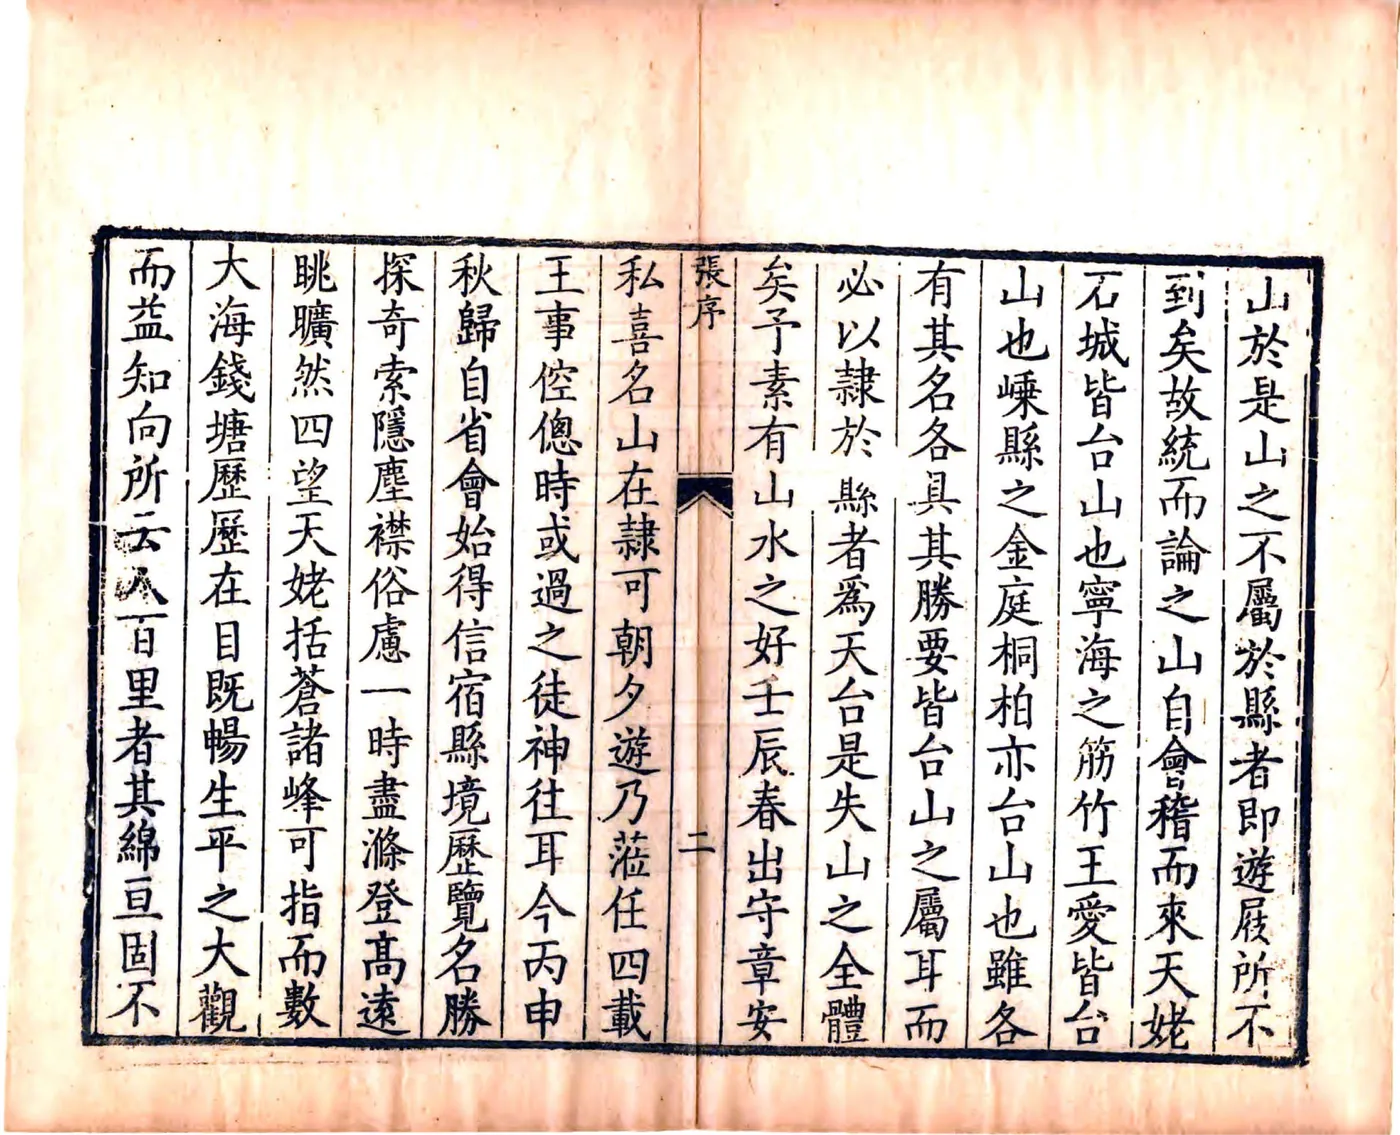 山於是山之不屬於縣者即遊屐所不
到矣故統而論之山自會稽而來天姥
石城皆台山也寧海之筋竹王愛皆台
山也嵊縣之金庭桐柏亦台山也雖各
有其名各具其勝要皆台山之屬耳而
必以隸於縣者為天台是失山之全體
矣予素有山水之好壬辰春出守章安
張序
二
私喜名山在隸可朝夕遊乃蒞任四載
王事倥傯時或過之徒神往耳今丙申
秋歸自省會始得信宿縣境歷覽名勝
探奇索隱塵襟俗慮一時盡滌登高遠
眺曠然四望天姥括蒼諸峰可指而數
大海錢塘歷歷在目既暢生平之大觀
而益知向所云八百里者其綿亘固不